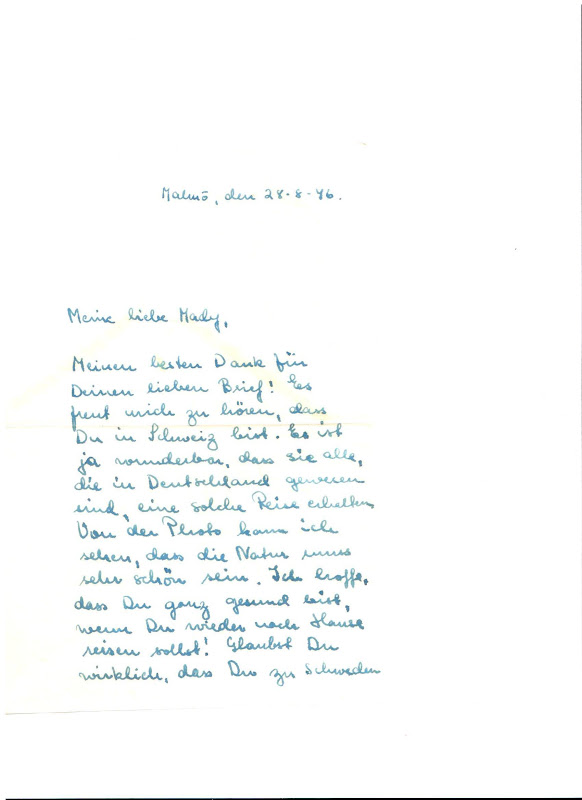 Malmö, den 28-8-46.
Meine liebe Mady,
Meinen besten Dank für
Deinen lieben Brief! Es
freut mich zu hören, dass
Du in Schweiz bist. Es ist
ja wunderbar, dass sie alle,
die in Deutschland gewesen
sind, eine solche Reise erhalten.
Von der Photo kann ich
sehen, dass die Natur muss
sehr schön sein. Ich hoffe,
dass Du ganz gesund bist,
wenn Du wieder nach Hause
reisen sollst! Glaubst Du
wirklich, dass Du zu Schweden